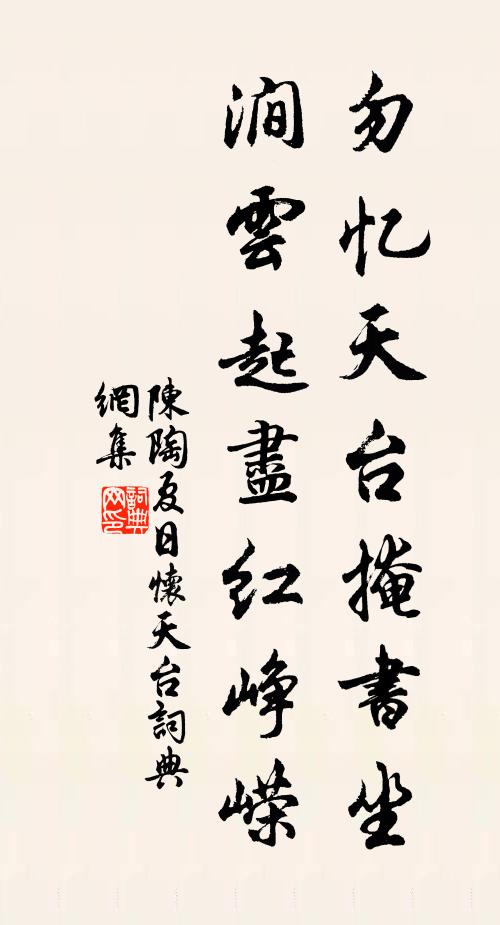 勿忆天台掩書坐
澗雲起盡红峥嶸
陳陶夏日懷天台詞典
網集
詞典
网印